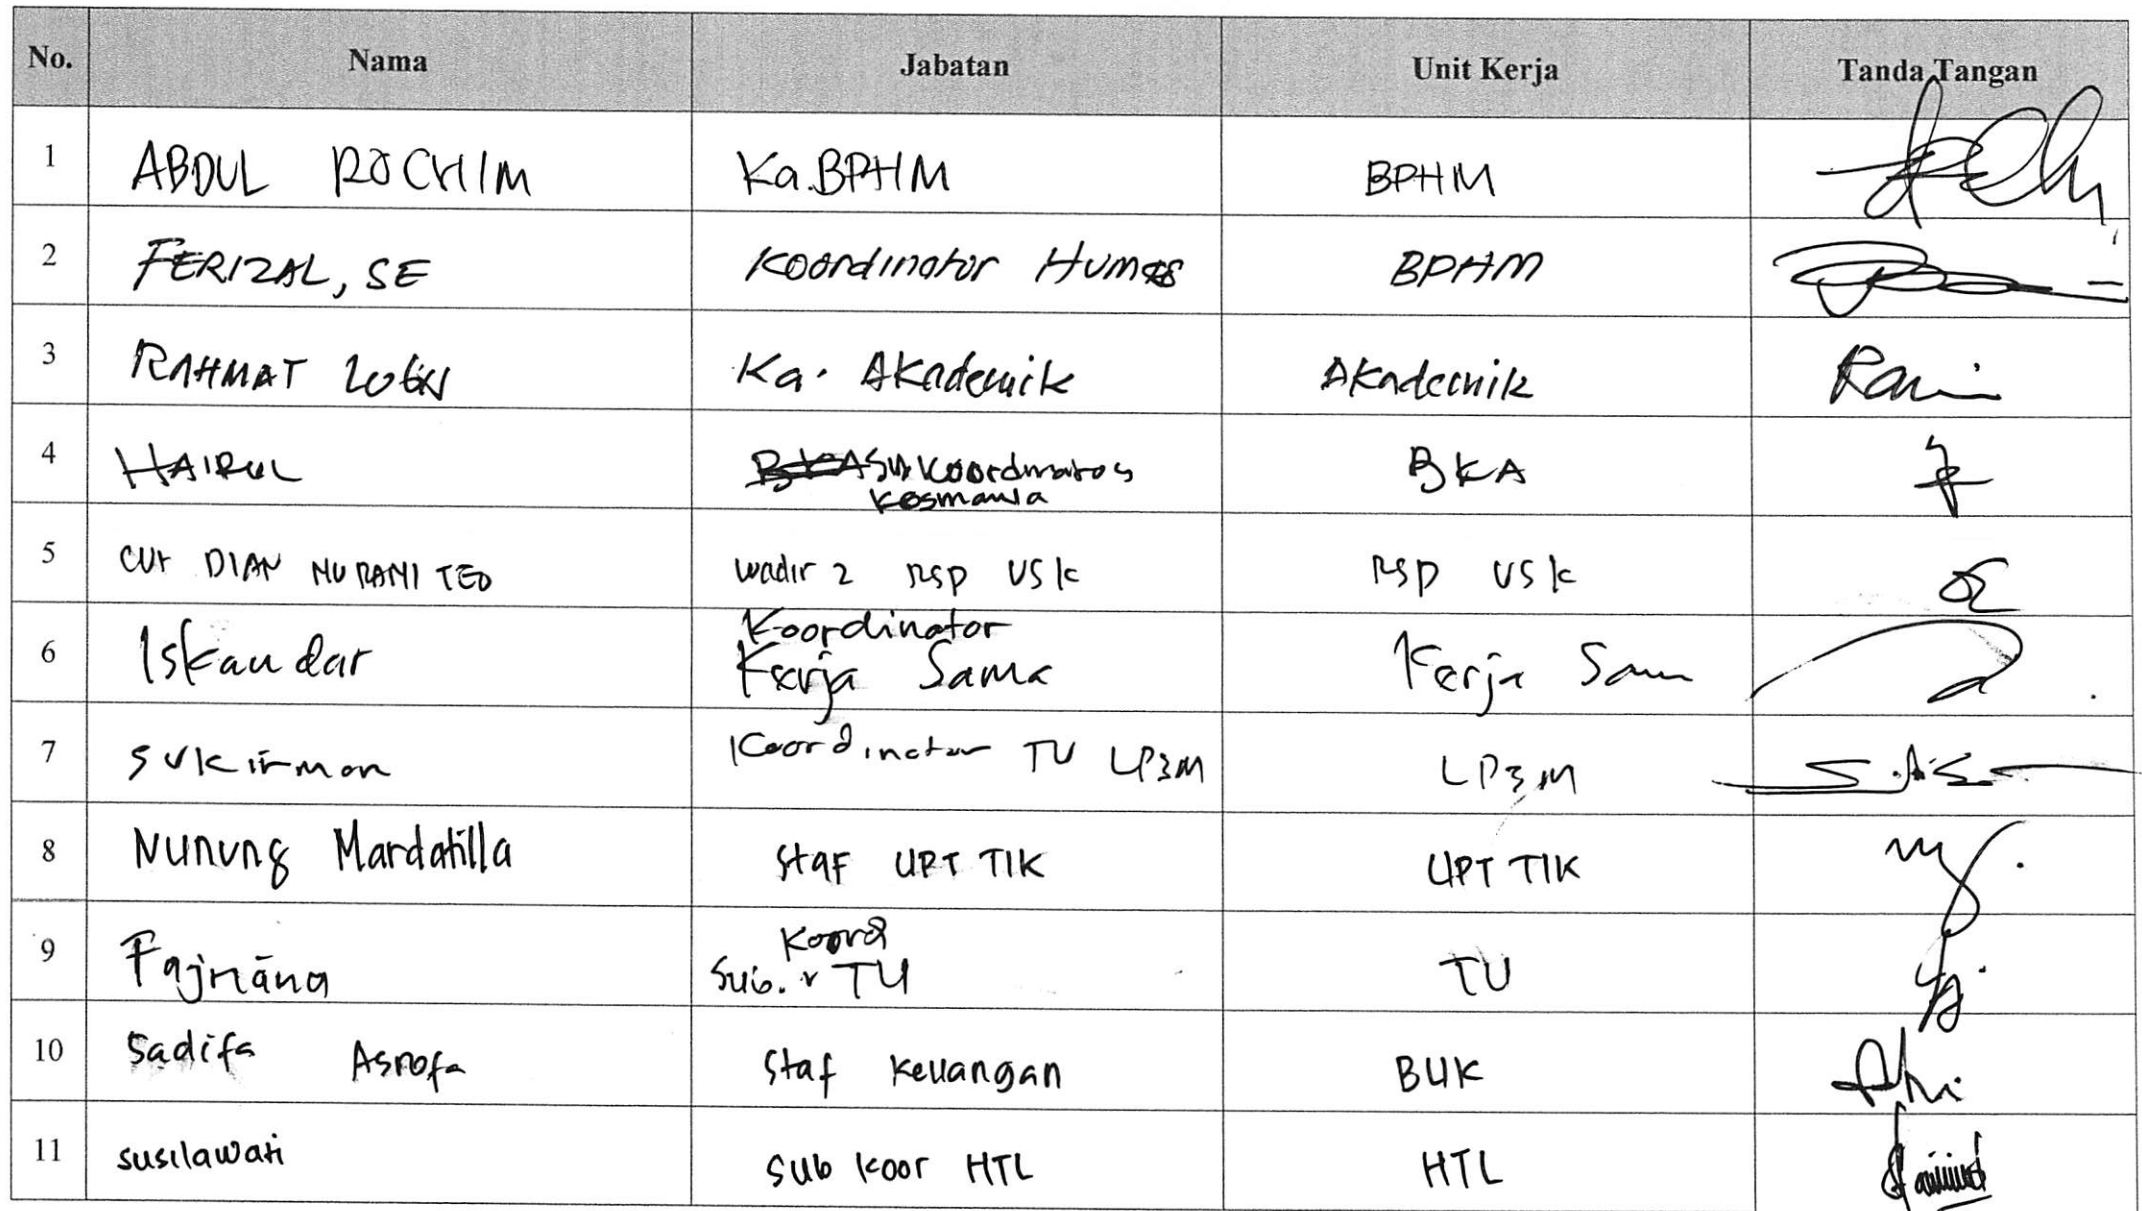 No. Nama Jabatan Unit Kerja Tanda Tangan
1 ABDUL ROCHIM Ka.BPHM BPHM
2 FERIZAL, SE Koordinator Humas BPHM
3 RAHMAT Ka. Akademik Akademik
4 HAIRUL Sub Koordinator BKA
5 CUT DIAN NURANI TEO wadir 2 RSP USK RSP USK
Koordinator
6 Iskandar Kerja Sama Kerja Sam
7 sukirman Koordinator TU LP3M LP3M
8 Nunung Mardatilla Staf UPT TIK UPT TIK
Koord
9 Fajriana Sub. TU TU
10 Sadifa Asrofa Staf Keuangan BUK
11 susilawati Sub Koor HTL HTL